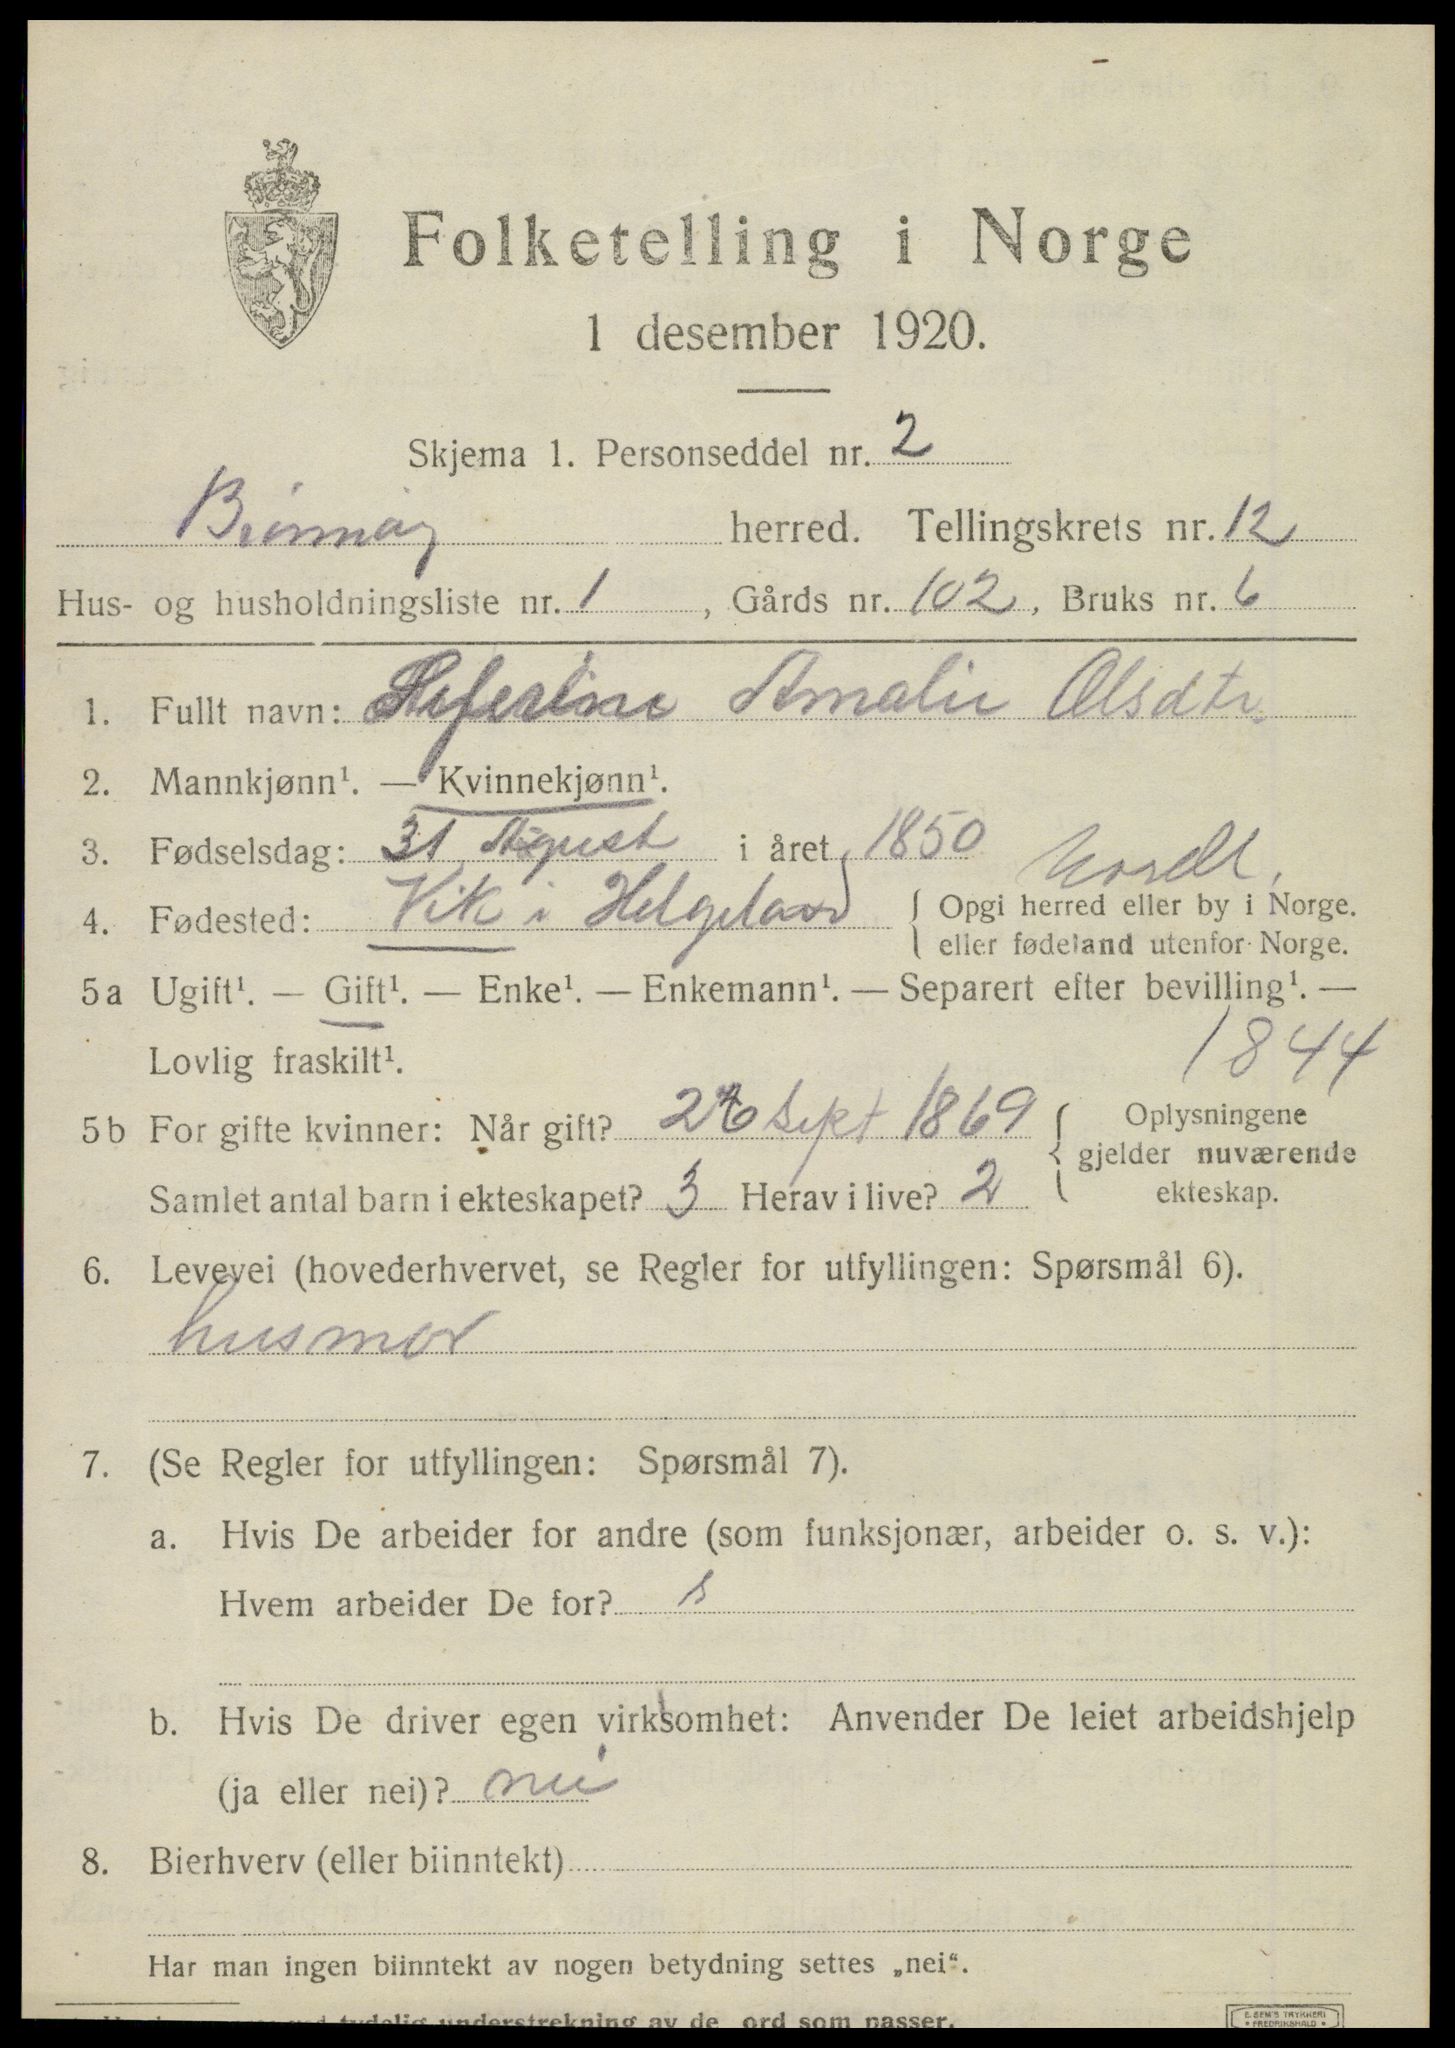 Folketelling i Norge
1 desember 1920.
Skjema 1. Personseddel nr. 2
Brønnøy herred. Tellingskrets nr. 12
Hus- og husholdningsliste nr. 1, Gårds nr. 102, Bruks nr. 6
1. Fullt navn: Amalie Olsdtr.
2. Mannkjønn¹. — Kvinnekjønn¹.
3. Fødselsdag: 31 August i året 1850
4. Fødested: Vik i Helgeland { Opgi herred eller by i Norge.
eller fødeland utenfor Norge.
5a Ugift¹. — Gift¹. — Enke¹. — Enkemann¹. — Separert efter bevilling¹. —
Lovlig fraskilt¹. 1844
5b For gifte kvinner: Når gift? Sept 1869 { Oplysningene
gjelder nuværende
Samlet antal barn i ekteskapet? 3 Herav i live? 2 ekteskap.
6. Levevei (hovederhvervet, se Regler for utfyllingen: Spørsmål 6).
husmor
7. (Se Regler for utfyllingen: Spørsmål 7).
a. Hvis De arbeider for andre (som funksjonær, arbeider o. s. v.):
Hvem arbeider De for? s
b. Hvis De driver egen virksomhet: Anvender De leiet arbeidshjelp
(ja eller nei)? nei
8. Bierhverv (eller biinntekt)
Har man ingen biinntekt av nogen betydning settes „nei“.
tydelig understrekning av de ord som passer.
E. SEM'S TRYKKERI
• FREDRIKSHALD •